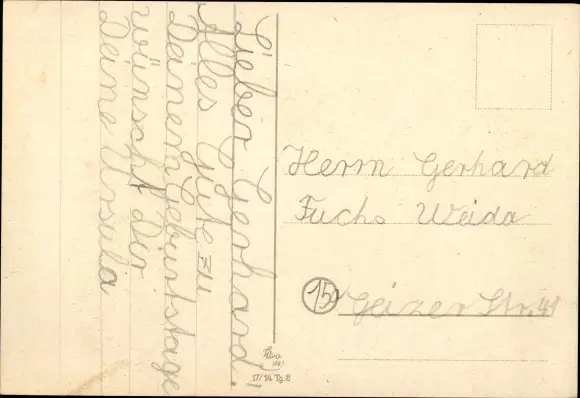 Lieber Gerhard!
Alles Gute zu
Deinem Geburtstage
wünscht Dir
Deine Ursula
Herrn Gerhard
Fuchs Weida
15
Geizer Str. 41
17/14 Tg. 8